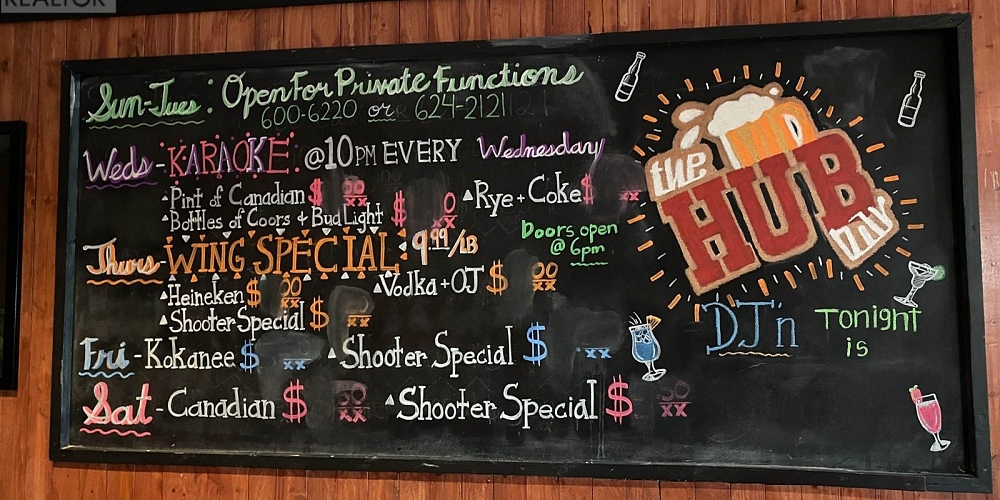 REALTOR
Sun-Tues: Open For Private Functions
600-6220 or 624-2121
Weds-KARAOKE @10PM EVERY Wednesday
Pint of Canadian $ 00 xx
Rye + Coke $ xx
Bottles of Coors + Bud Light $ 0 xx
Doors open
@ 6pm
Thurs-WING SPECIAL: 9.99/LB
Heineken $ 00 xx
Vodka + OJ $ 00 xx
Shooter Special $ xx
Fri-Kokanee $ xx
Shooter Special $ xx
Sat-Canadian $ 50 xx
Shooter Special $ 50 xx
the
HUB
DJ'n Tonight
is